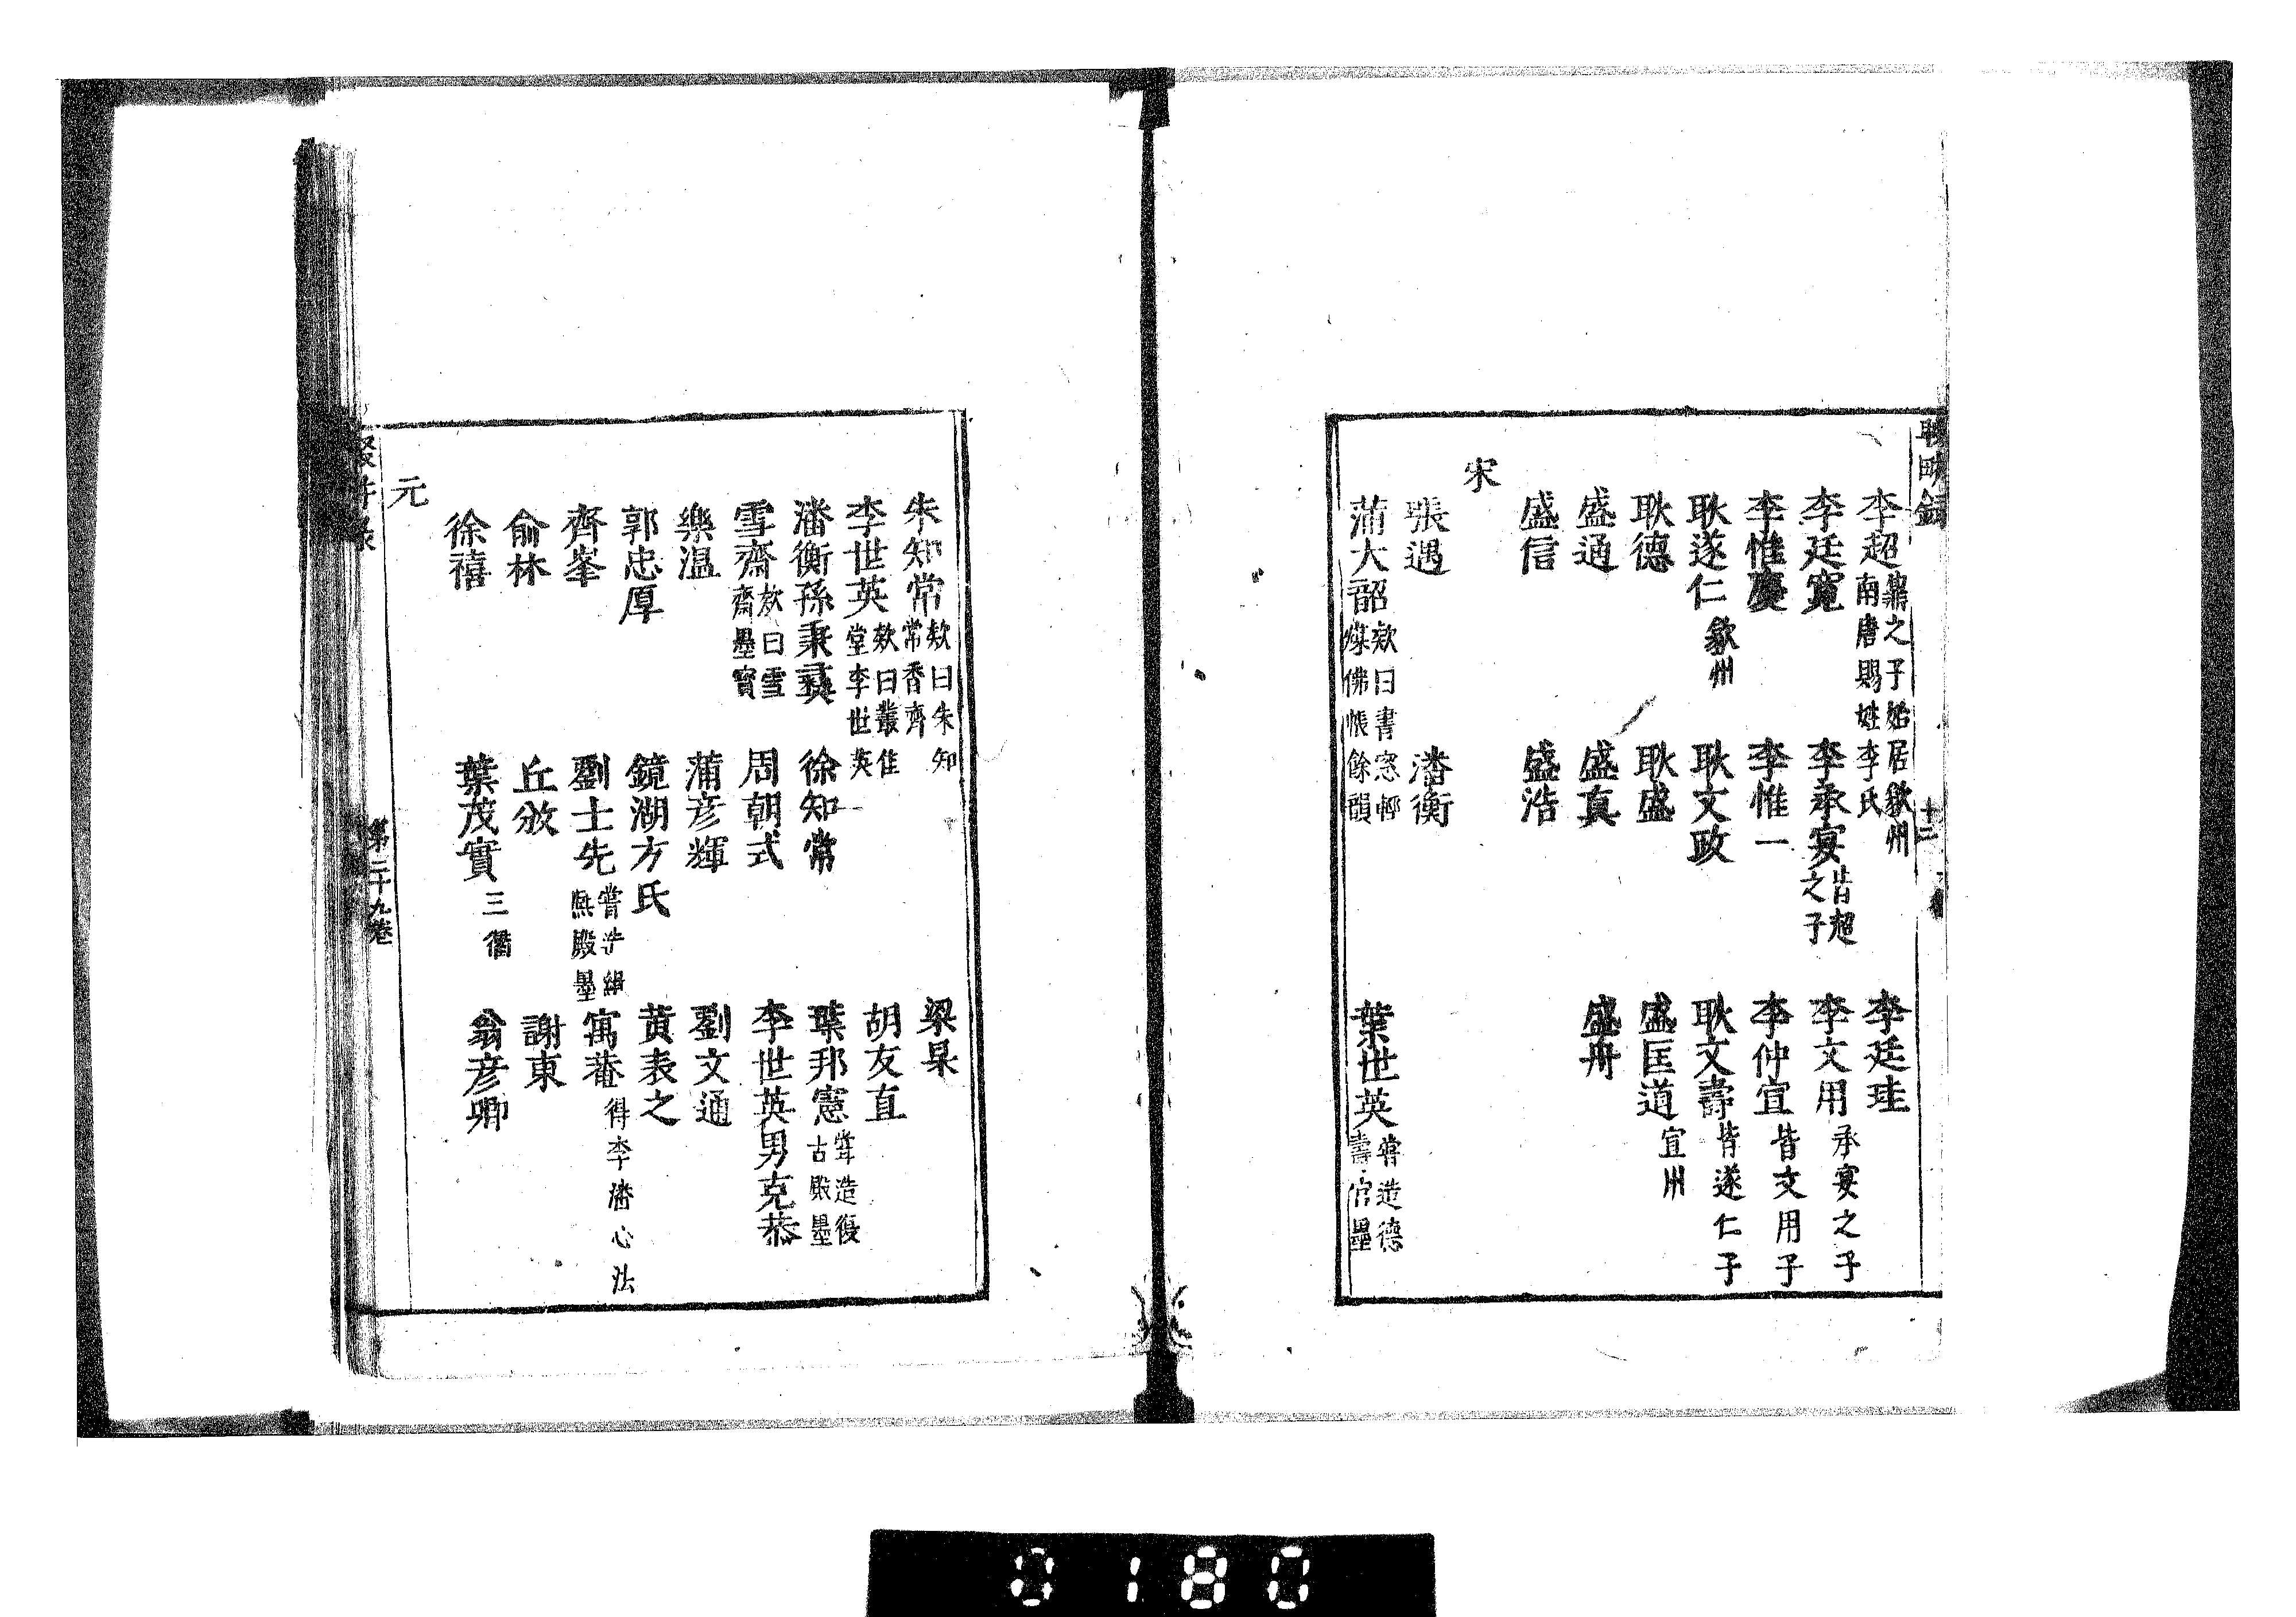 輟畊錄 十二
李超鼐之子始居歙州南唐賜姓李氏 李廷珪
李廷寬 李承宴皆超之子 李文用承宴之子
李惟慶 李惟一 李仲宣皆文用子
耿遂仁歙州 耿文政 耿文壽皆遂仁子
耿德 耿盛 盛匡道宣州
盛通 盛真 盛舟
盛信 盛浩
宋
張遇 潘衡
蒲大韶欵曰書窓輕煤佛帳餘韻 葉世英嘗造德壽宮墨
朱知常欵曰朱知常香齊 梁杲
李世英欵曰叢佳堂李世英 胡友直
潘衡孫秉彝 徐知常 葉邦憲嘗造復古殿墨
雪齋欵曰雪齋墨寶 周朝式 李世英男克恭
樂溫 蒲彥輝 劉文通
郭忠厚 鏡湖方氏 黃表之
齊峯 劉士先嘗造緝熙殿墨 寓菴得李潘心法
俞林 丘攽 謝東
徐禧 葉茂實三衢 翁彥卿
元
第二十九卷
0180